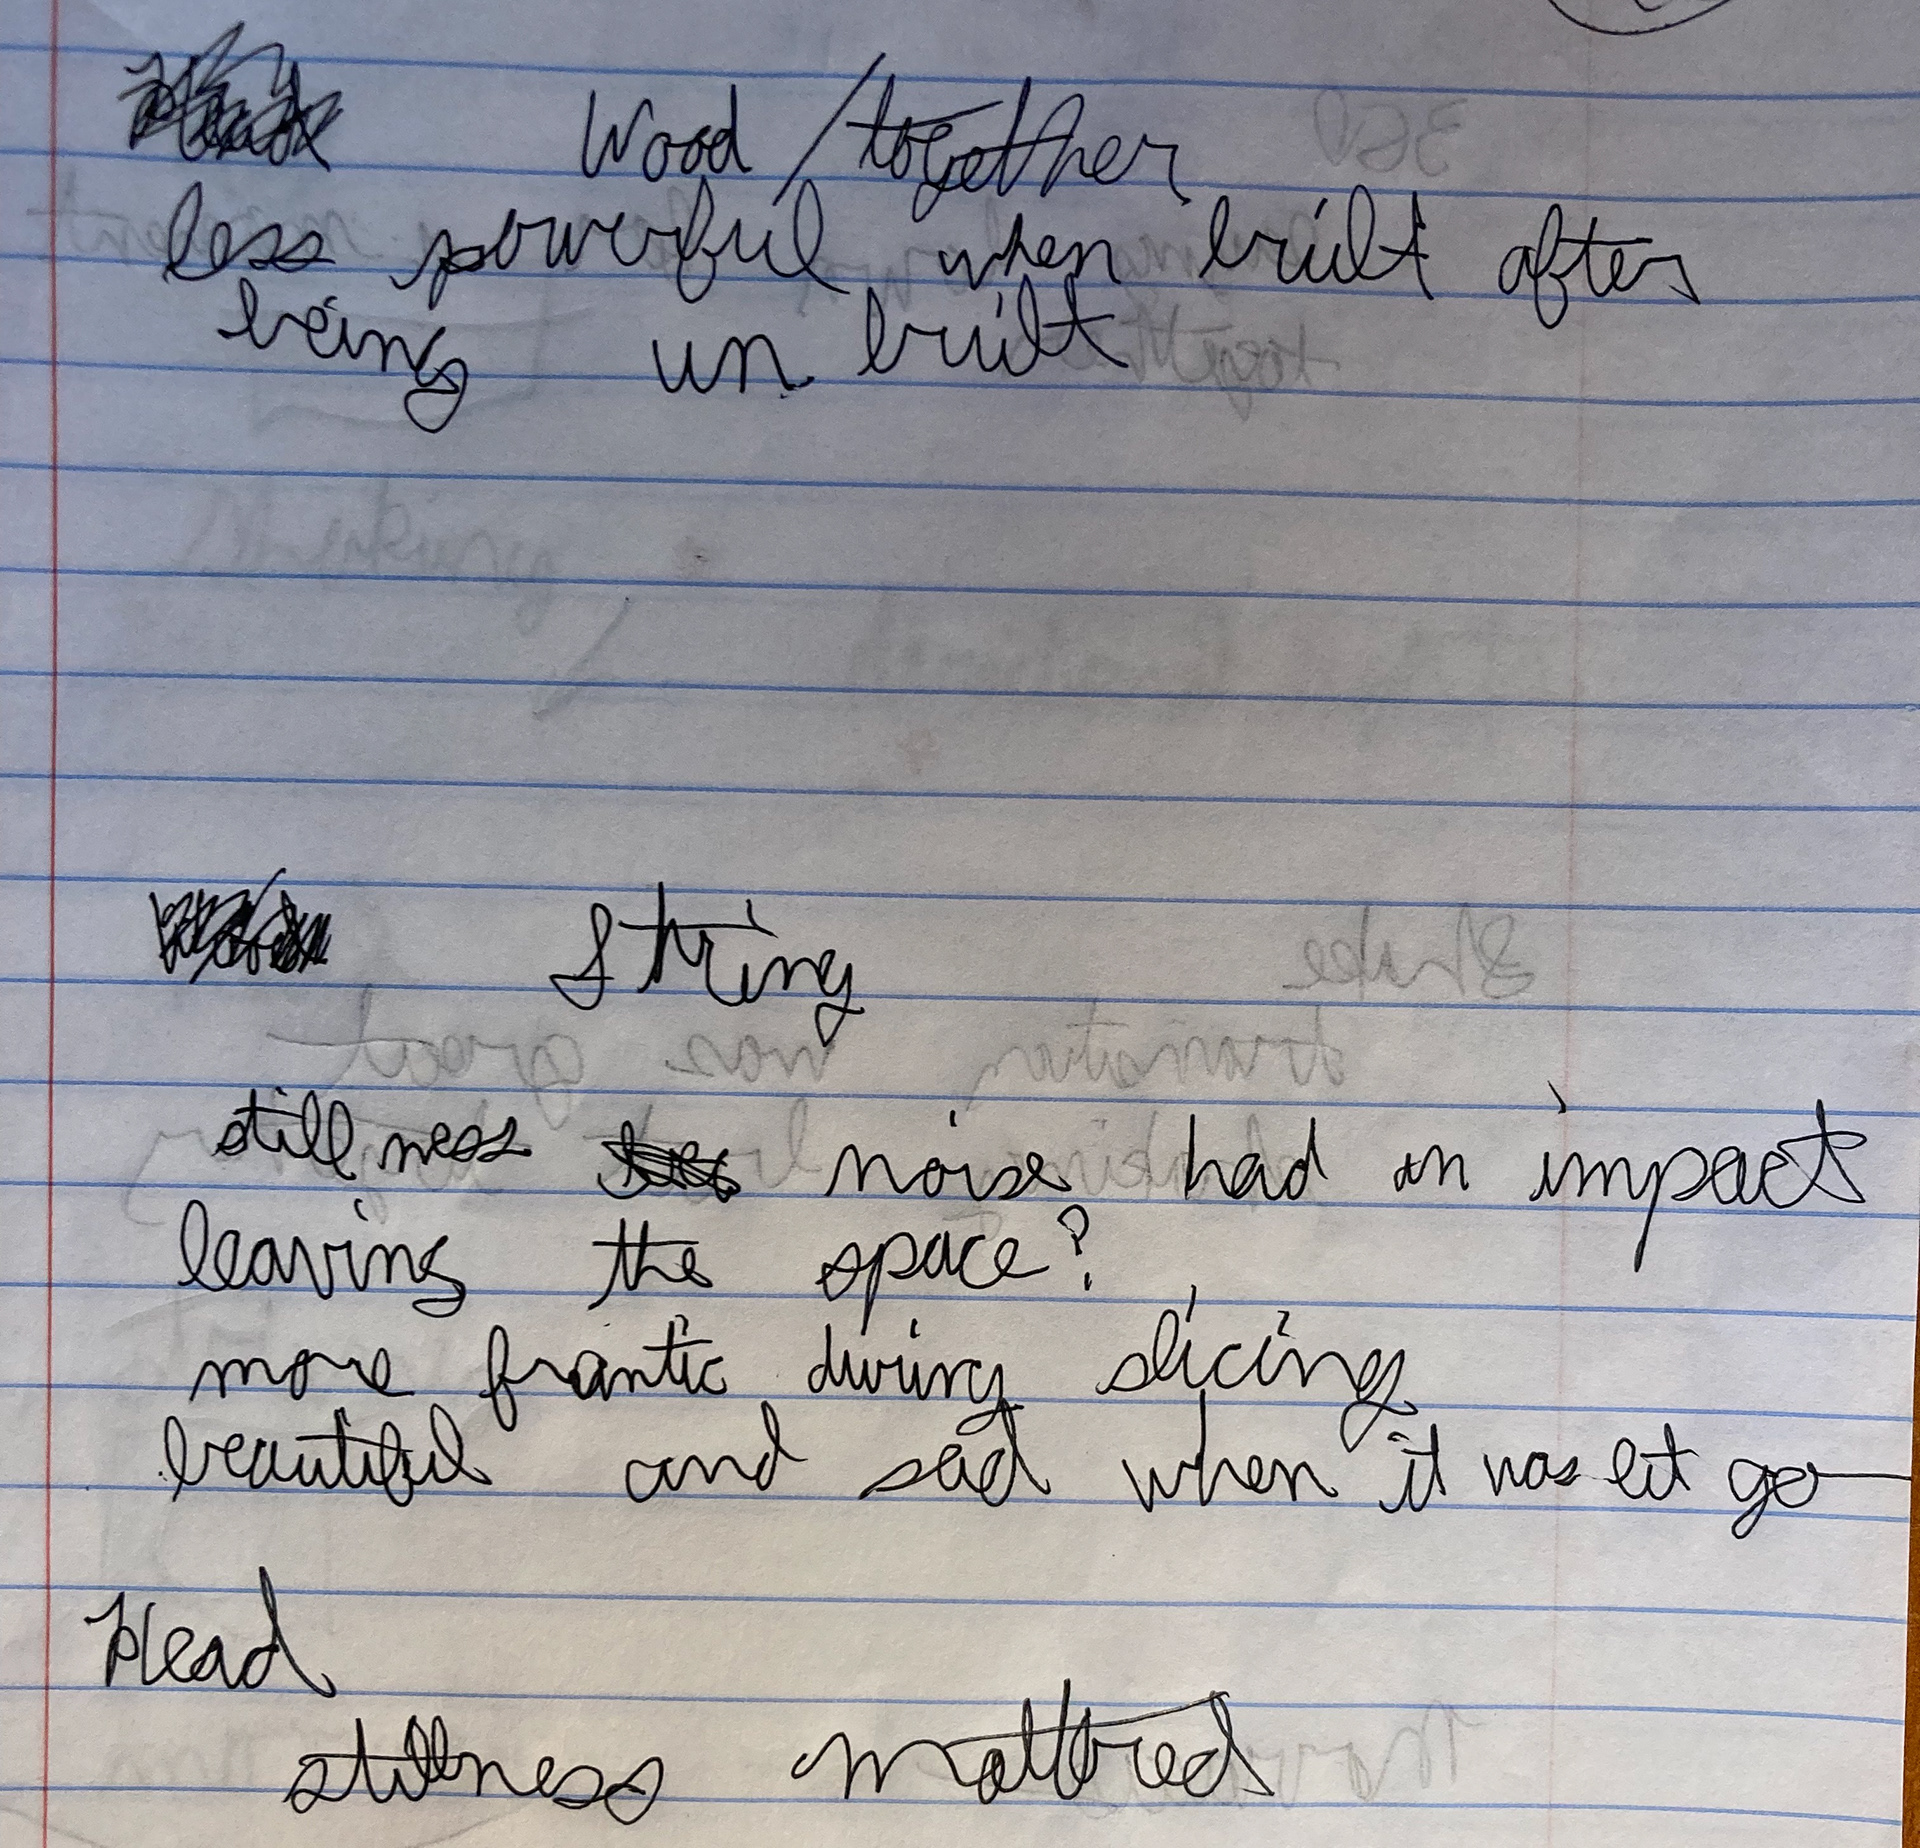 Wood / together
less powerful when built after
being un built
String
stillness noise had an impact
leaving the space?
more frantic during slicing
beautiful and sad when it was let go
Head
stillness mattered